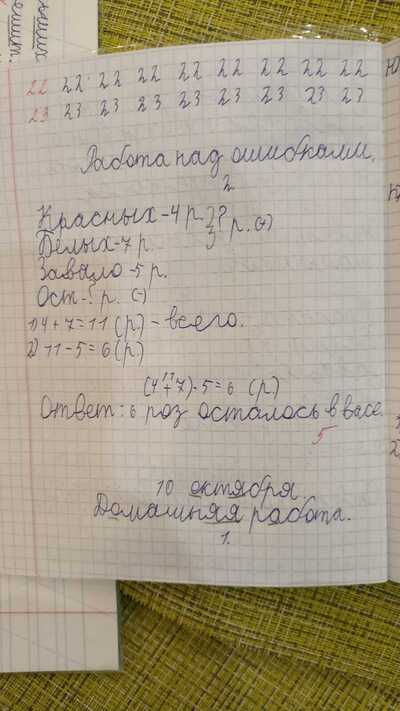 22 22 22 22 22 22 22 22 22
23 23 23 23 23 23 23 23 23
Работа над ошибками.
2
Красных-4 р. }? р. (+)
Белых-7 р.
Завяло-5 р.
Ост-? р. (-)
1) 4+7=11 (р.) - всего.
2) 11-5=6 (р.)
11
(4+7)-5=6 (р.)
Ответ: 6 роз осталось в вазе.
5
10 октября.
Домашняя работа.
1.